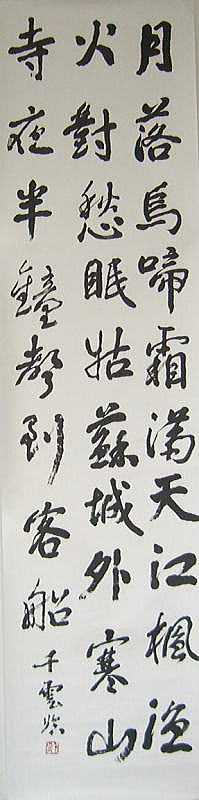 月落烏啼霜滿天江楓漁
火對愁眠姑蘇城外寒山
寺夜半鐘聲到客船
千雲